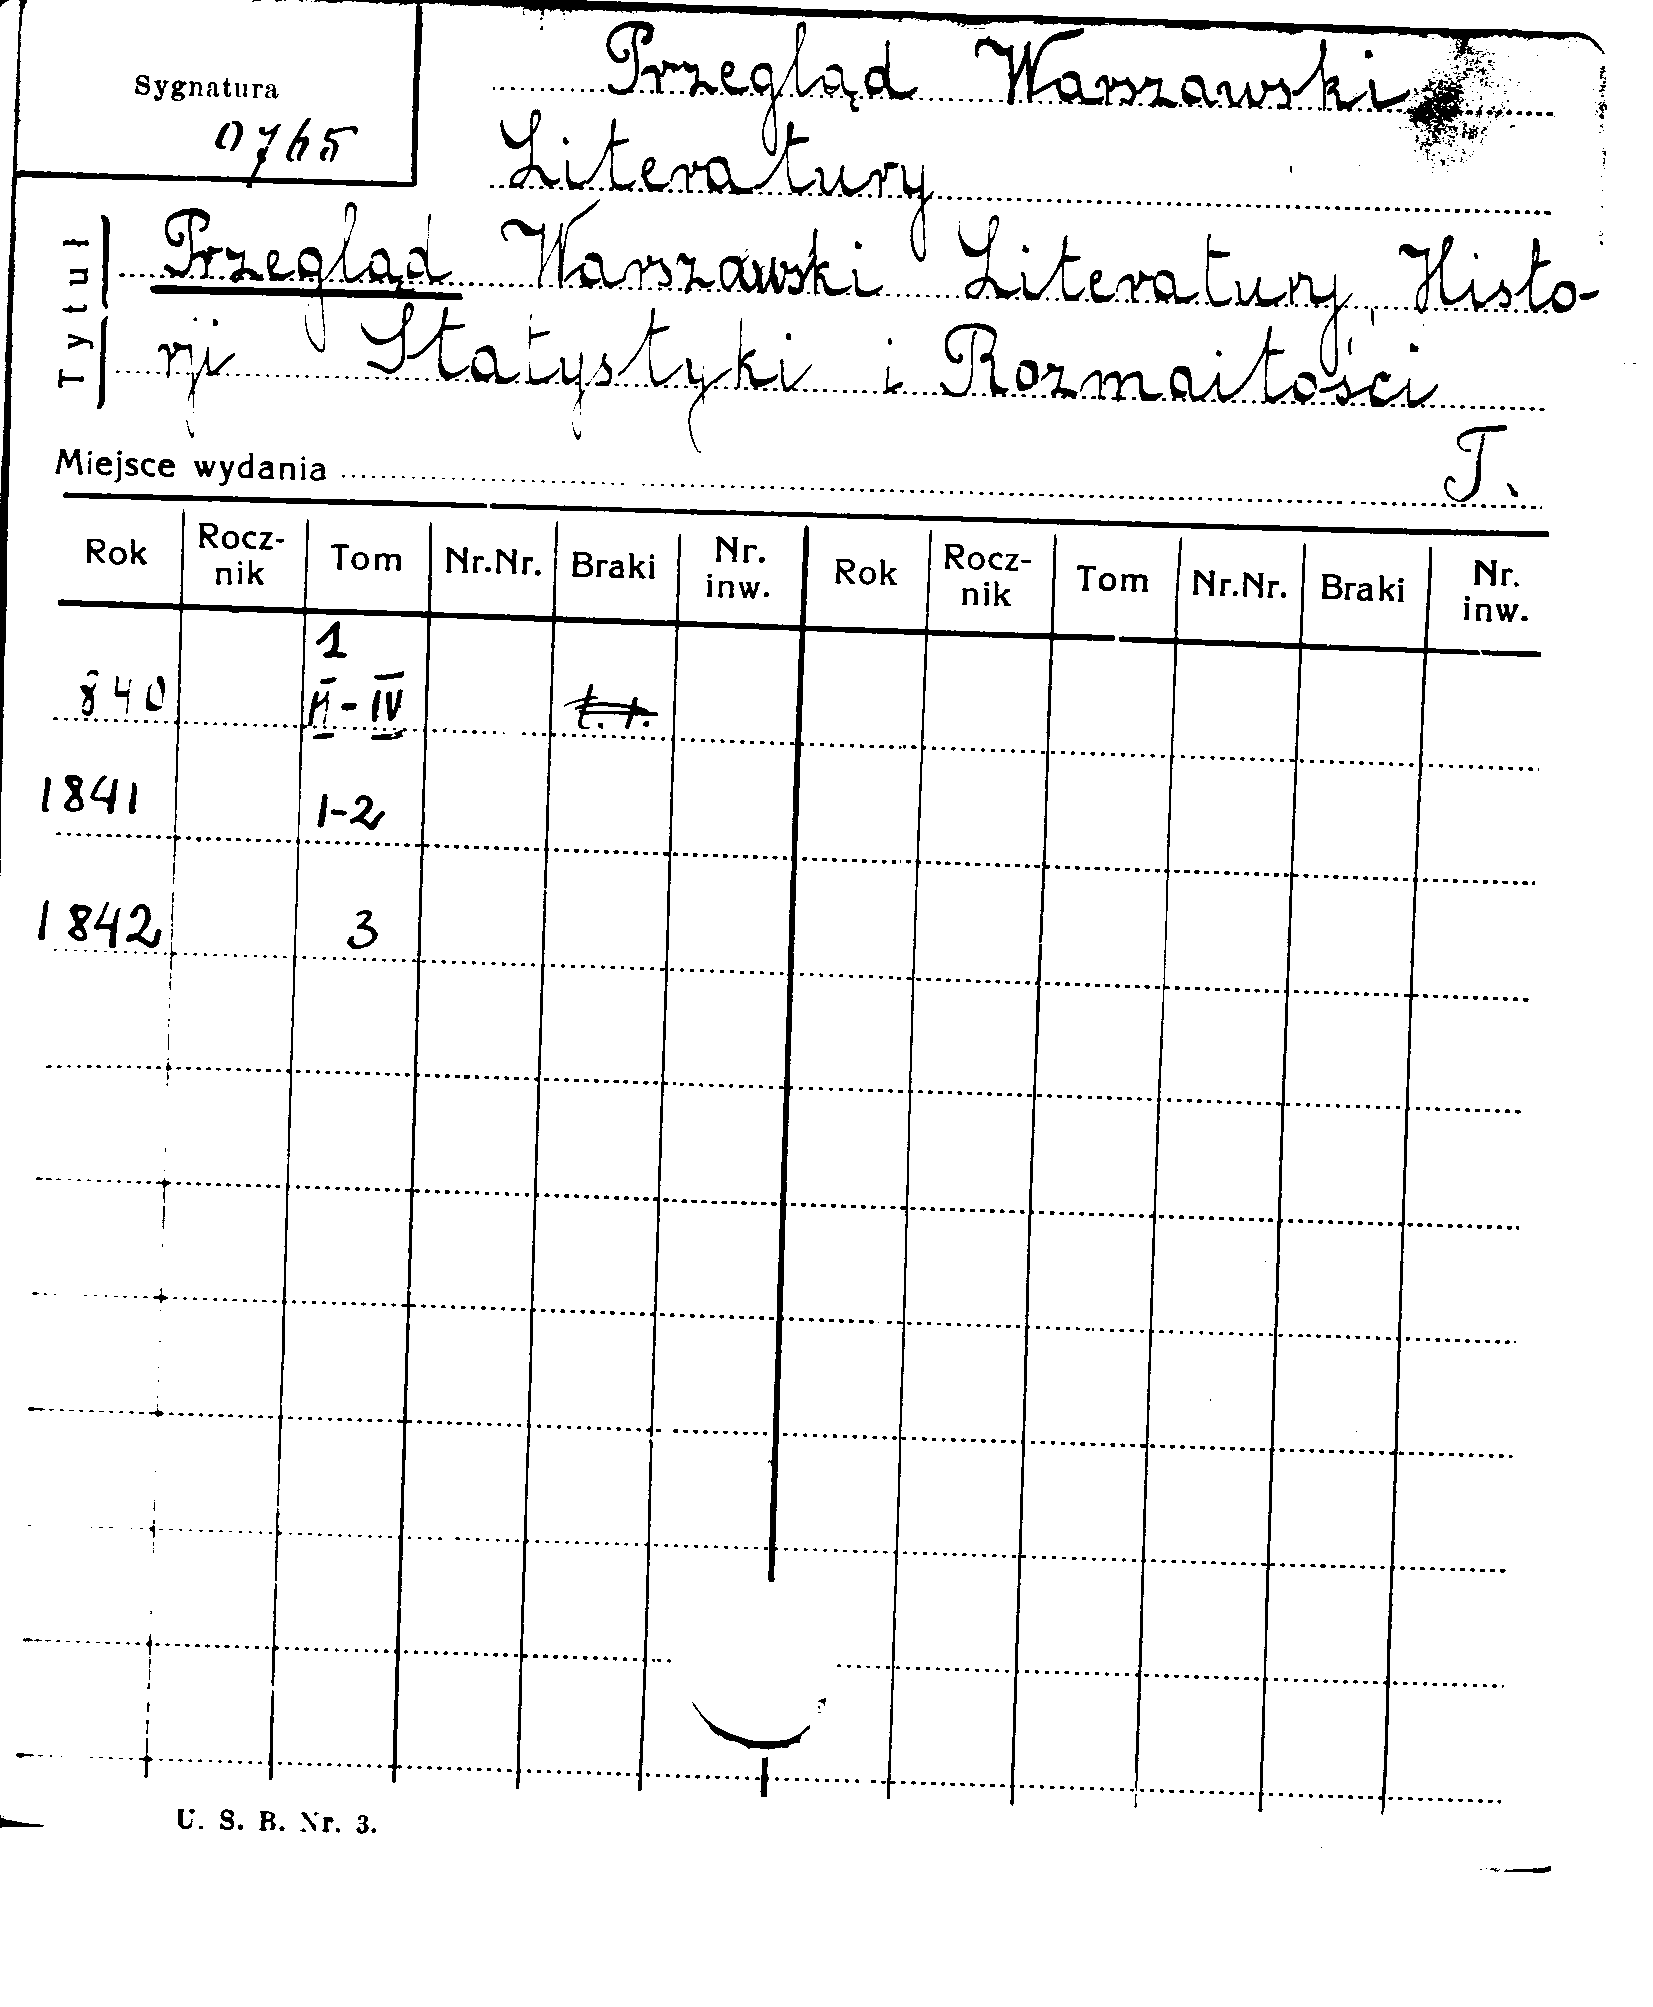 Sygnatura
0765
Przegląd Warszawski
Literatury
Tytuł
Przegląd Warszawski Literatury, Histo-
rji Statystyki i Rozmaitości
T.
Miejsce wydania
Rok Rocz-nik Tom Nr.Nr. Braki Nr. inw. Rok Rocz-nik Tom Nr.Nr. Braki Nr. inw.
1
840 II-IV t. 1.
1841 1-2
1842 3
U. S. B. Nr. 3.